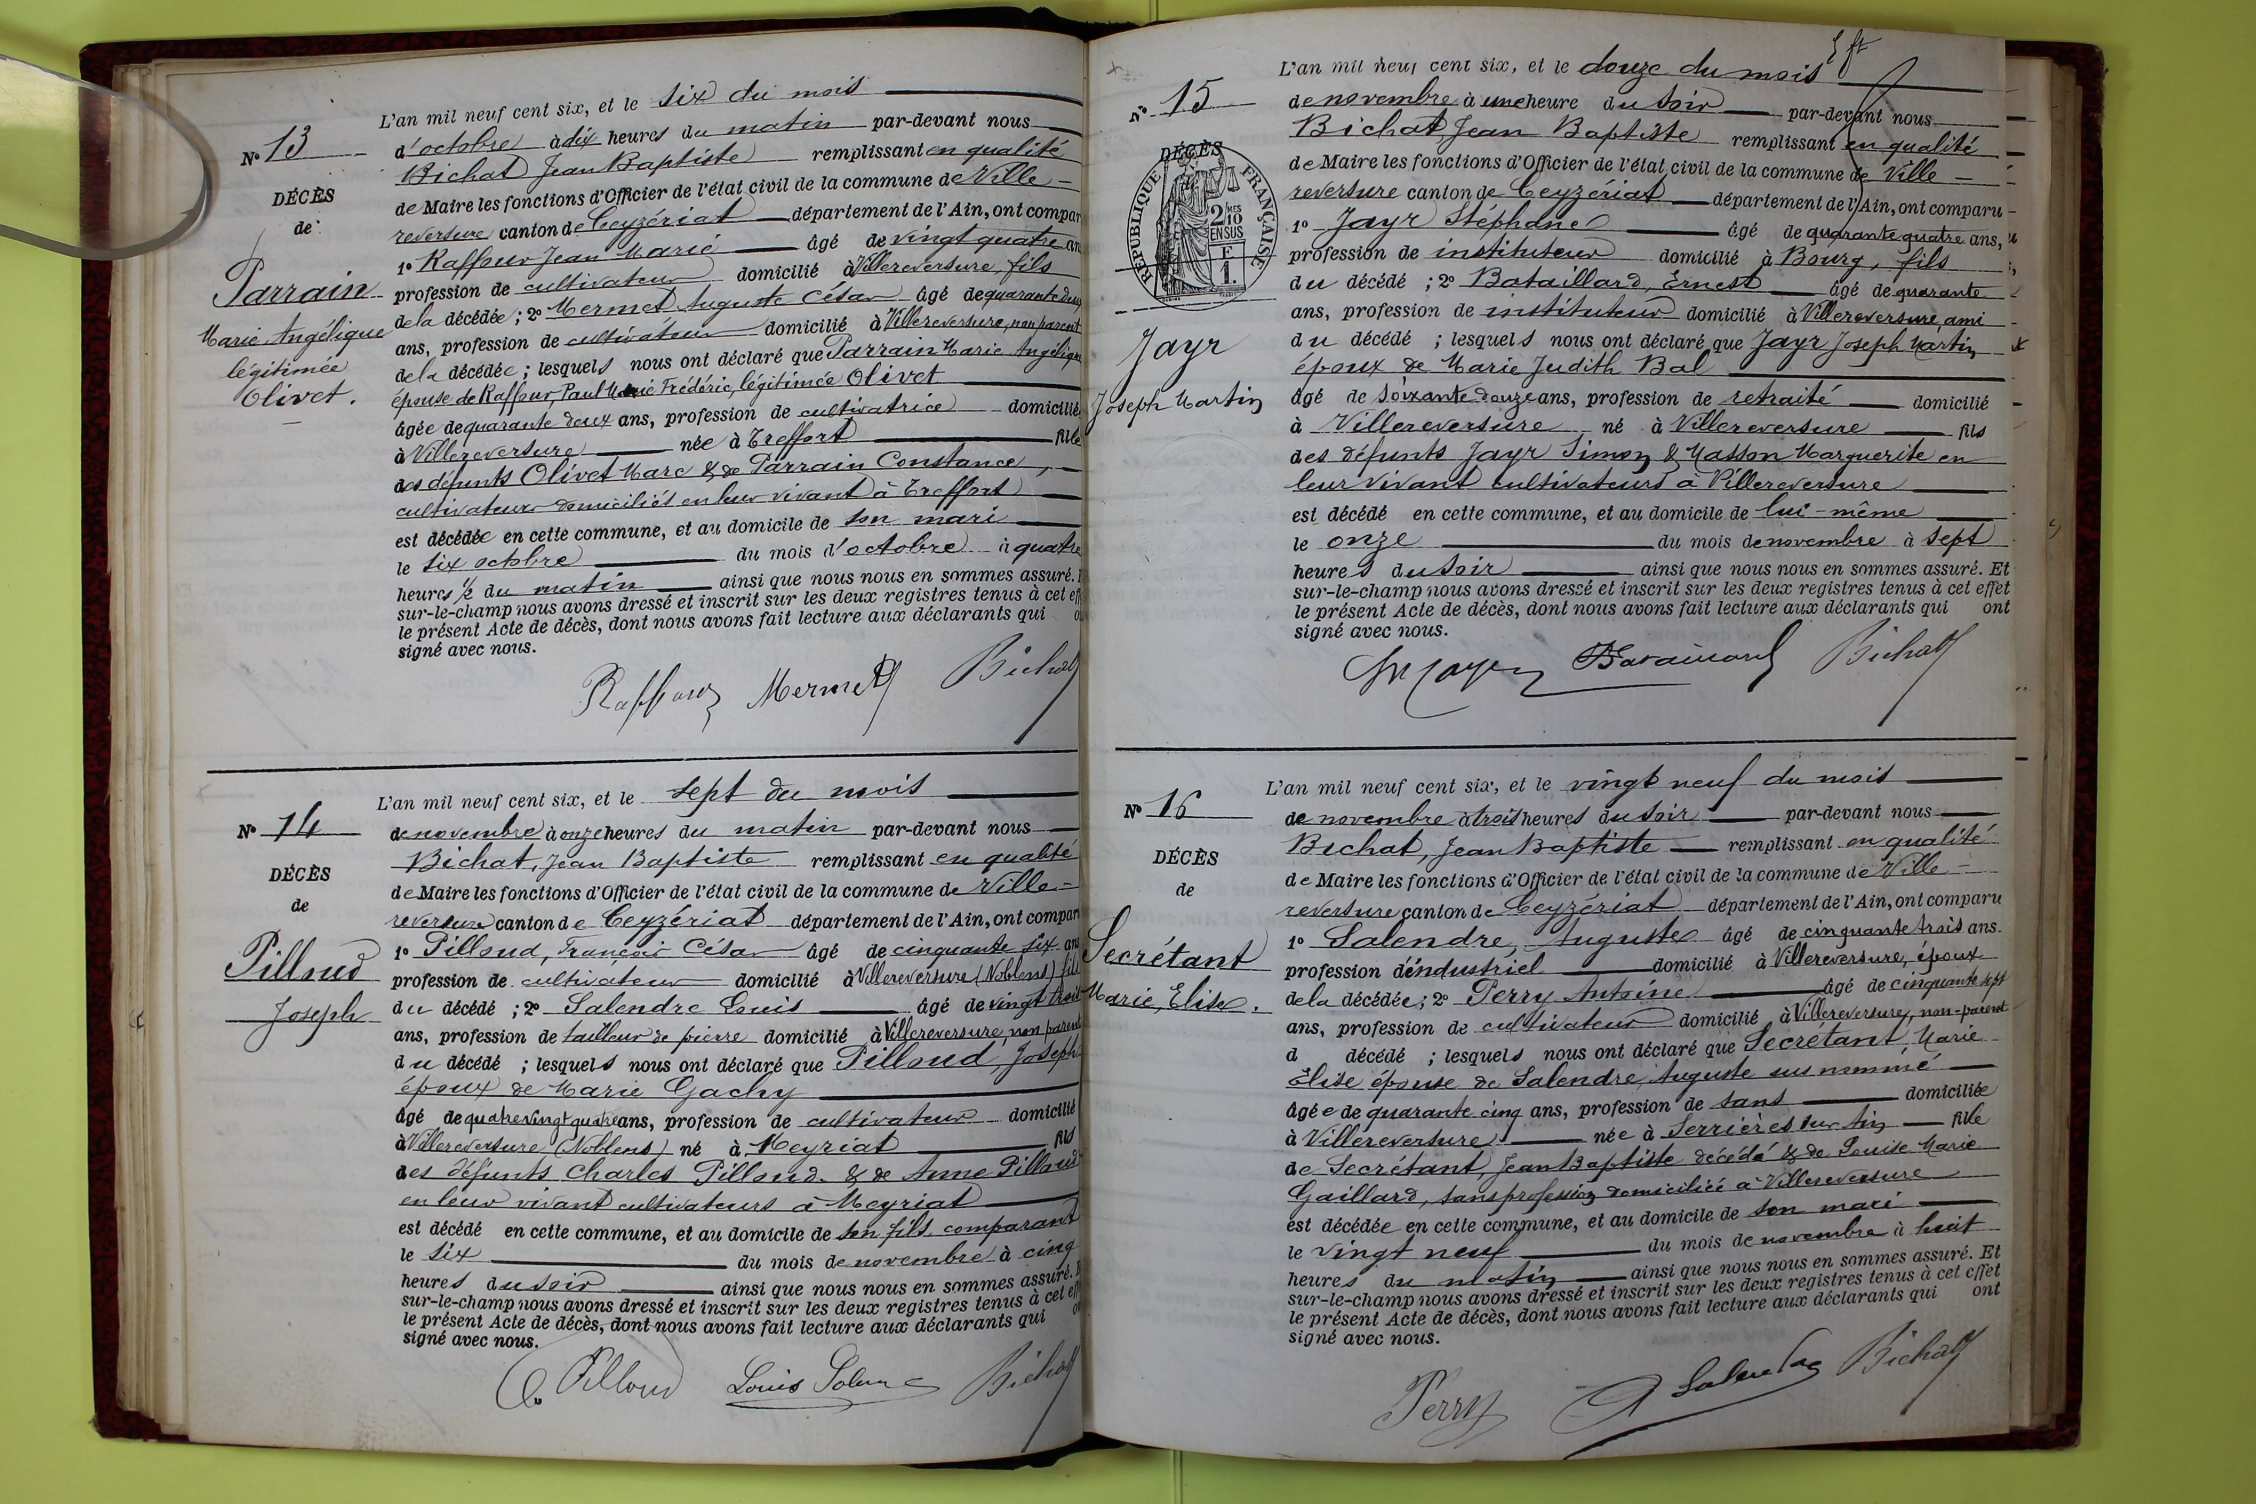 L'an mil neuf cent six, et le six du mois
N° 13
d'octobre à dix heures du matin par-devant nous
Bichat Jean Baptiste remplissant en qualité
DÉCÈS
de Maire les fonctions d'Officier de l'état civil de la commune de Ville-
de
reversure canton de Ceyzériat département de l'Ain, ont compar
1° Raffour Jean Marie âgé de vingt quatre an
Parrain
profession de cultivateur domicilié à Villereversure, fils
de la décédée ; 2° Mermet Auguste César âgé de quarante deux
Marie Angélique
ans, profession de cultivateur domicilié à Villereversure, non parent
légitimée
de la décédée ; lesquels nous ont déclaré que Parrain Marie Angélique
Olivet.
épouse de Raffour, Paul Marie Frédéric, légitimée Olivet
âgée de quarante deux ans, profession de cultivatrice domicilié
à Villereversure née à Treffort fille
des défunts Olivet Marc & de Parrain Constance,
cultivateurs domiciliés en leur vivant à Treffort
est décédée en cette commune, et au domicile de son mari
le six octobre du mois d'octobre à quatre
heures ½ du matin ainsi que nous nous en sommes assuré.
sur-le-champ nous avons dressé et inscrit sur les deux registres tenus à cet eff
le présent Acte de décès, dont nous avons fait lecture aux déclarants qui o
signé avec nous.
Raffour Mermet Bichat
L'an mil neuf cent six, et le sept du mois
N° 14
de novembre à onze heures du matin par-devant nous
Bichat, Jean Baptiste remplissant en qualité
DÉCÈS
de Maire les fonctions d'Officier de l'état civil de la commune de Ville-
de
reversure canton de Ceyzériat département de l'Ain, ont comparu
Pilloud
1° Pilloud, François César âgé de cinquante six ans
profession de cultivateur domicilié à Villereversure (Noblens) fils
Joseph
du décédé ; 2° Salendre Louis âgé de vingt trois
ans, profession de tailleur de pierre domicilié à Villereversure, non parent
du décédé ; lesquels nous ont déclaré que Pilloud, Joseph
époux de Marie Gachy
âgé de quatre vingt quatre ans, profession de cultivateur domicilié
à Villereversure (Noblens) né à Meyriat fils
des défunts Charles Pilloud & de Anne Pilloud
en leur vivant cultivateurs à Meyriat
est décédé en cette commune, et au domicile de son fils comparant
le six du mois de novembre à cinq
heures du soir ainsi que nous nous en sommes assuré.
sur-le-champ nous avons dressé et inscrit sur les deux registres tenus à cet eff
le présent Acte de décès, dont nous avons fait lecture aux déclarants qui o
signé avec nous.
Pilloud Louis Bichat
L'an mil neuf cent six, et le douze du mois
N° 15
de novembre à une heure du soir par-devant nous
Bichat, Jean Baptiste remplissant en qualité
DÉCÈS
de Maire les fonctions d'Officier de l'état civil de la commune de Ville-
RÉPUBLIQUE FRANÇAISE
2 MES 10 EN SUS
E
1.
reversure canton de Ceyzériat département de l'Ain, ont comparu
1° Jayr Stéphane âgé de quarante quatre ans,
profession de instituteur domicilié à Bourg, fils
du décédé ; 2° Bataillard, Ernest âgé de quarante
ans, profession de instituteur domicilié à Villereversure, ami
Jayr
du décédé ; lesquels nous ont déclaré que Jayr Joseph Martin
époux de Marie Judith Bal
Joseph Martin
âgé de soixante douze ans, profession de retraité domicilié
à Villereversure né à Villereversure fils
des défunts Jayr Simon & Masson Marguerite en
leur vivant cultivateurs à Villereversure
est décédé en cette commune, et au domicile de lui-même
le onze du mois de novembre à sept
heures du soir ainsi que nous nous en sommes assuré. Et
sur-le-champ nous avons dressé et inscrit sur les deux registres tenus à cet effet
le présent Acte de décès, dont nous avons fait lecture aux déclarants qui ont
signé avec nous.
Bataillard Bichat
L'an mil neuf cent six, et le vingt neuf du mois
N° 16
de novembre à trois heures du soir par-devant nous
Bichat, Jean Baptiste remplissant en qualité
DÉCÈS
de Maire les fonctions d'Officier de l'état civil de la commune de Ville-
de
reversure canton de Ceyzériat département de l'Ain, ont comparu
1° Salendre, Auguste âgé de cinquante trois ans.
Secrétant
profession d'industriel domicilié à Villereversure, époux
Marie, Elise.
de la décédée ; 2° Perry Antoine âgé de cinquante sept
ans, profession de cultivateur domicilié à Villereversure, non-parent
d décédé ; lesquels nous ont déclaré que Secrétant, Marie
Elise épouse de Salendre, Auguste sus nommé
âgée de quarante cinq ans, profession de sans domiciliée
à Villereversure née à Serrières sur Ain fille
de Secrétant, Jean Baptiste décédé & de Louise Marie
Gaillard, sans profession domiciliée à Villereversure
est décédée en cette commune, et au domicile de son mari
le vingt neuf du mois de novembre à huit
heures du matin ainsi que nous nous en sommes assuré. Et
sur-le-champ nous avons dressé et inscrit sur les deux registres tenus à cet effet
le présent Acte de décès, dont nous avons fait lecture aux déclarants qui ont
signé avec nous.
Perry A Salendre Bichat